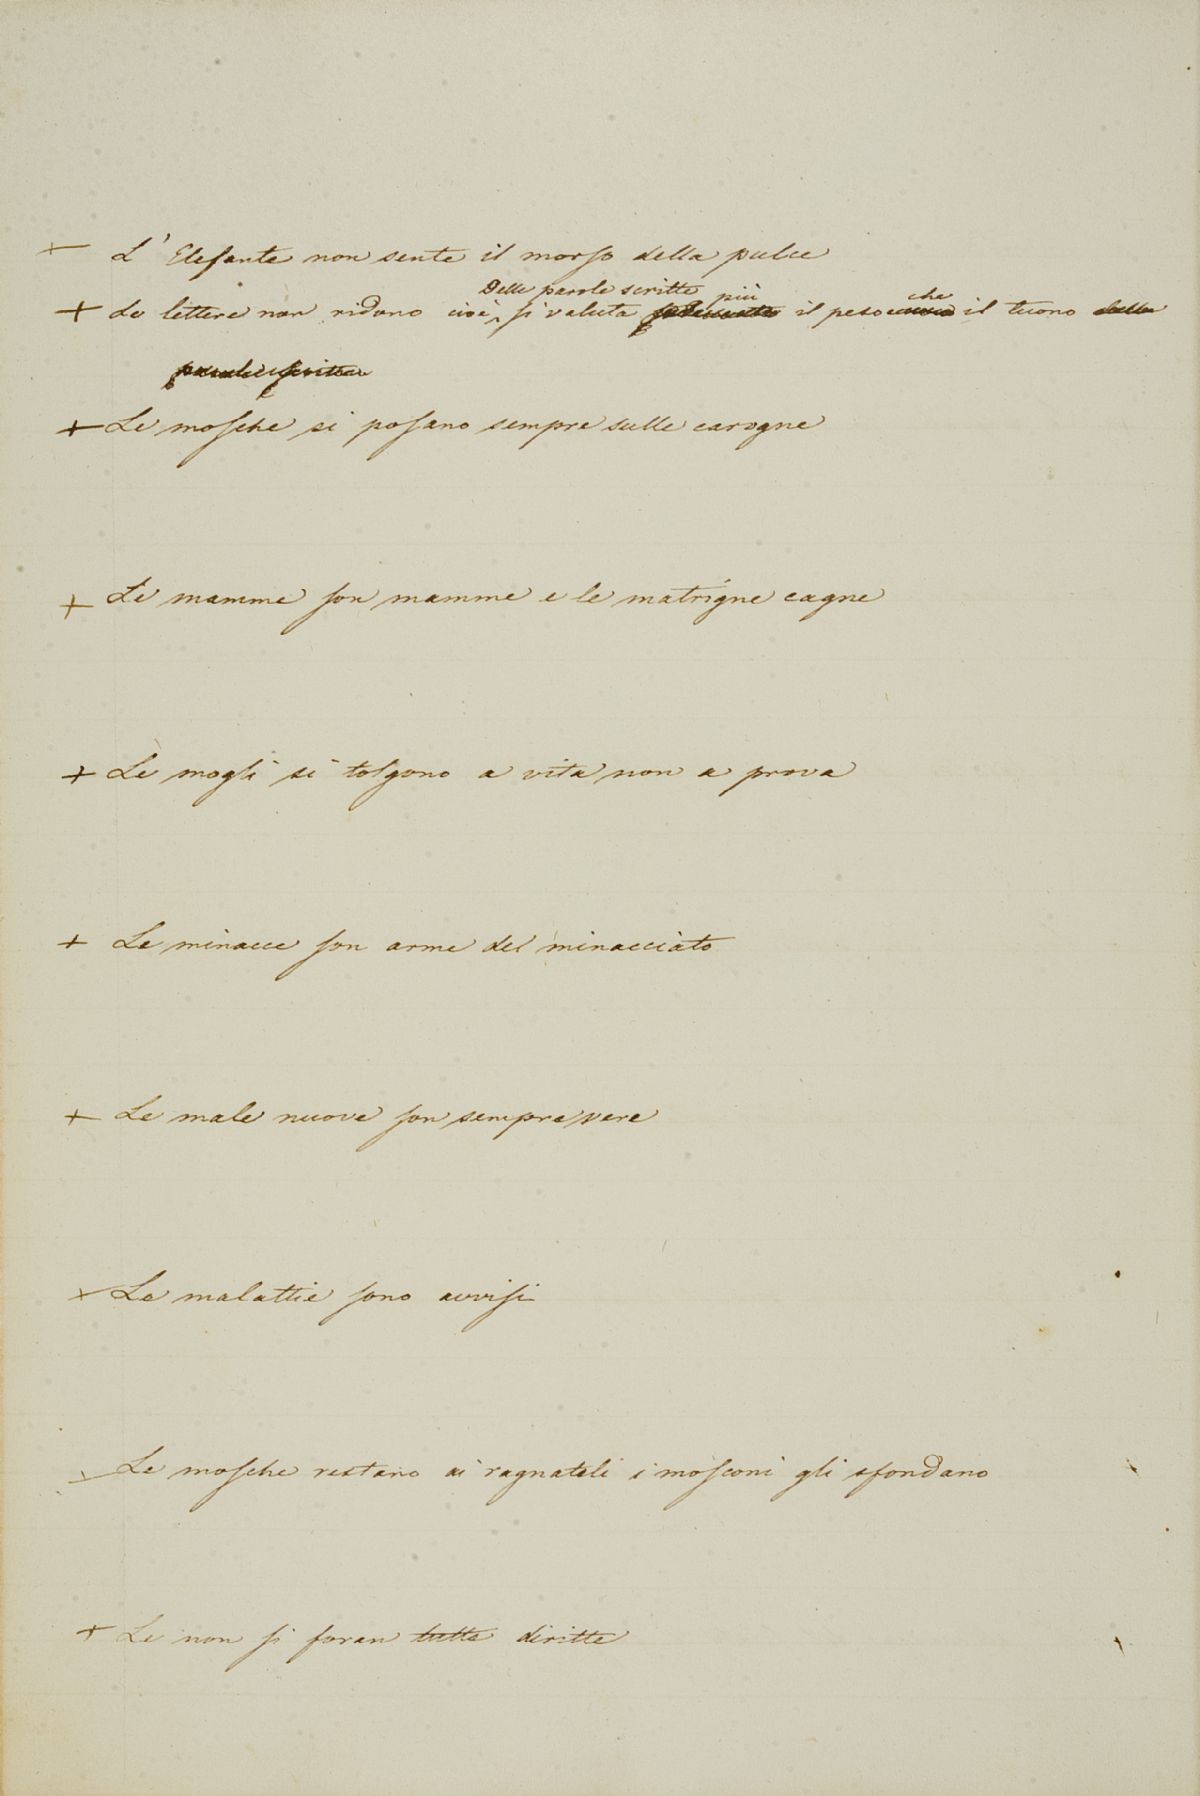 + L' Elefante non sente il morso della pulce
Delle parole scritte più che
+ Le lettere non ridono cioè si valuta il peso il tuono della
parole scritte
+ Le mosche si posano sempre sulle carogne
+ Le mamme son mamme e le matrigne cagne
+ Le mogli si tolgono a vita non a prova
+ Le minacce son arme del minacciato
+ Le male nuove son sempre vere
+ Le malattie sono avvisi
+ Le mosche restano ai ragnateli i mosconi gli sfondano
+ Le non si foran tutte diritte